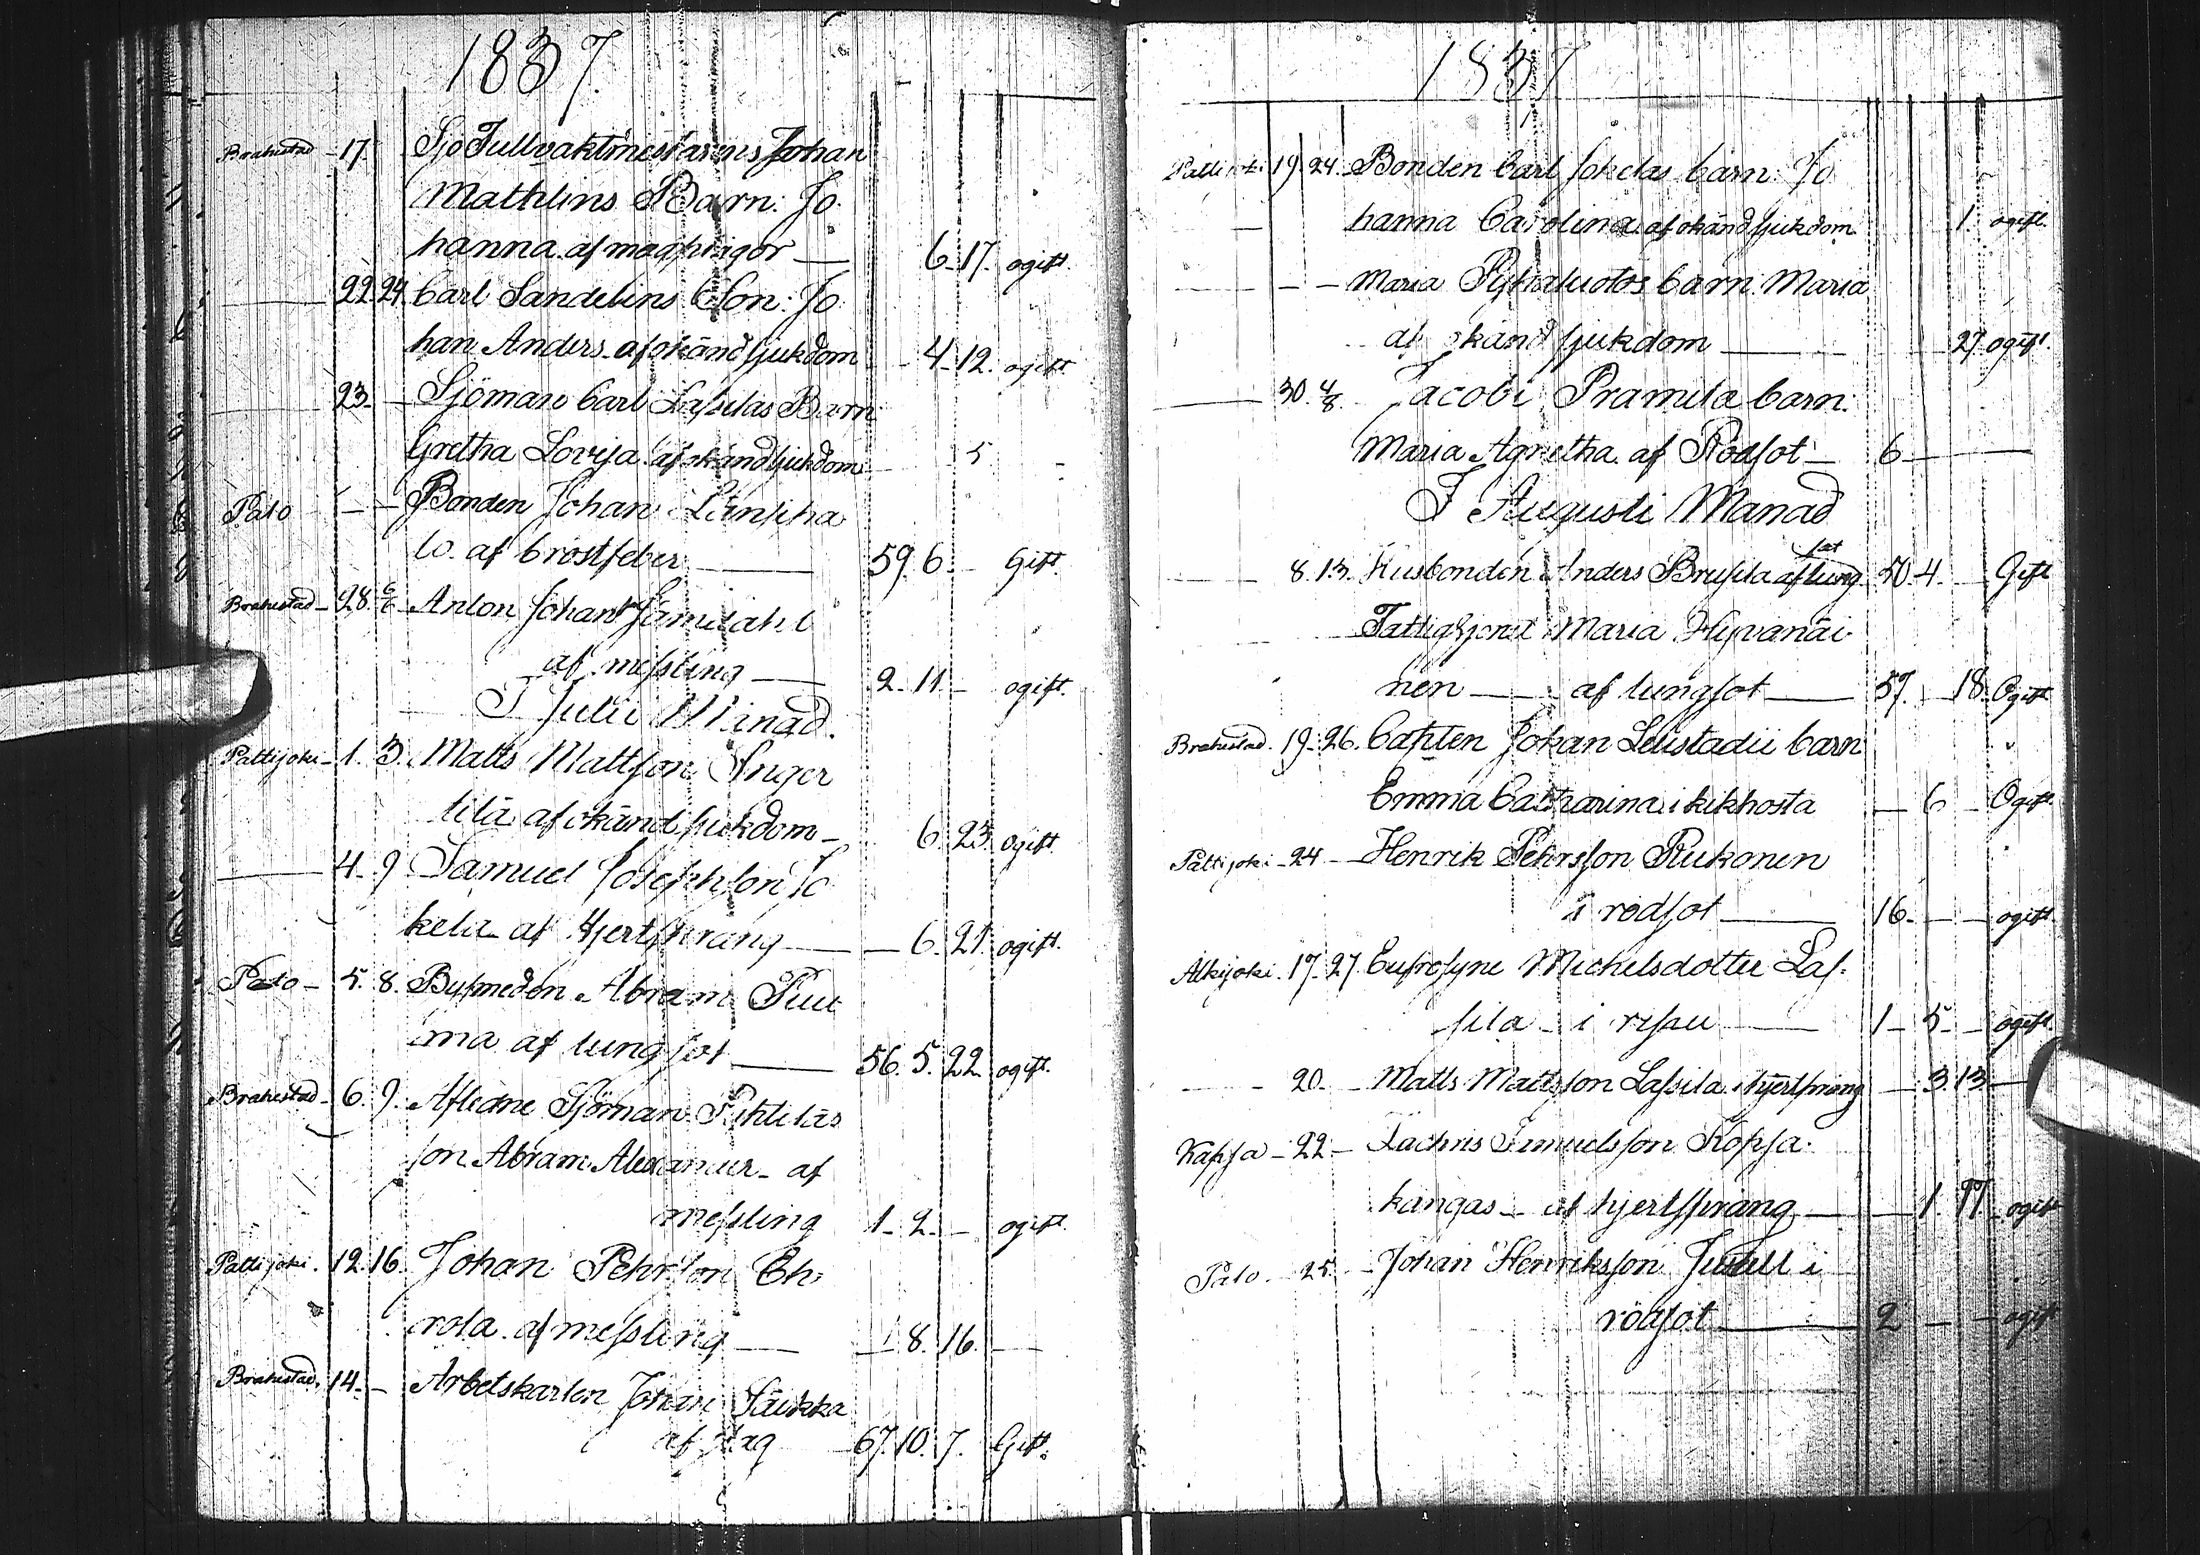 1837.
Brahestad 17. Sjö Tullvaktmestarens Johan
Mathlins Barn: Jo
hanna af magpingor — 6. 17. ogift.
22 24 Carl Sandelins Son: Jo
han Anders af okänd sjukdom - 4. 12. ogift
23. — Sjöman Carl Lassilas Barn
Gretha Lovisa af okänd sjukdom 5
Palo — — Bonden Johan
lo. af bröstfeber — 59. 6. — Gift.
Brahestad — 28. 6/6 Anton Johan
af messling — 2. 11. — ogift.
I Julii Månad.
Pattijoki — 1. 3. Matts Mattson Inger
tilä af okänd sjukdom — 6. 23. ogift.
4. 9 Samuel Josephson Jo
kela af Hjertsprång — — 6. 21. ogift.
Palo — 5. 8. Bysmeden Abram Tuu
ma af lungsot — 56. 5. 22. ogift.
Brahestad — 6. 9. Afledne Sjöman Pihtiläs
son Abram Alexander — af
messling 1. 2. — ogift.
Pattijoki. 12. 16. Johan Pehrson Eh
rola af messling — — 8. 16. —
Brahestad. 14. — Arbetskarlen Johan Säikkä
af slag 67. 10. 7. Gift.
1837
Pattijoki. 19. 24. Bonden Carl Jokelas barn: Jo
hanna Carolina af okänd sjukdom 1. ogift.
— — Maria Pyhäluotos barn. Maria
af okänd sjukdom — 27 ogift.
30. 4/8. Jacobi Pramila barn:
Maria Agnetha. af Rödsot — 6 — —
I Augusti Månad
8. 13. Husbonden Anders Brusila af lung 50 4. — Gift
sot
Maria Hyvänäi
nen — af lungsot — 57. — 18. Ogift
Brahestad. 19. 26. Capten Johan Leustadii barn
Emma Catharina i kikhosta — 6 — Ogift.
Pattijoki — 24 — Henrik Pehrsson Rukonen
i rödsot — 16. — — ogift.
Alkijoki. 17. 27. Eufrosyne Michelsdotter Las-
sila — i rysau — 1 — 5 — ogift.
— 20. — Matts Mattsson Lassila i hjertsprång — 3. 13 —
Kopsa — 22 — Zachris Samuelsson Kopsa-
kangas — af hjertsprång — — 1. ogift
Palo — 25. — Johan Henriksson Judell i
rödsot — 2 — — ogift